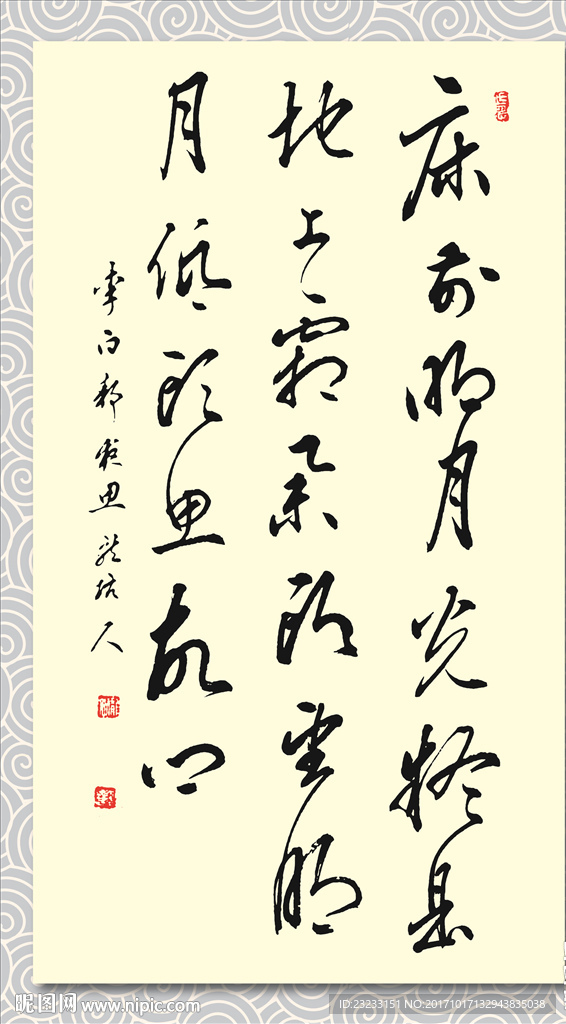 床前明月光疑是
地上霜舉頭望明
月低頭思故鄉
李白靜夜思 人
昵图网 www.nipic.com
ID:23233151 NO:20171017132943835038